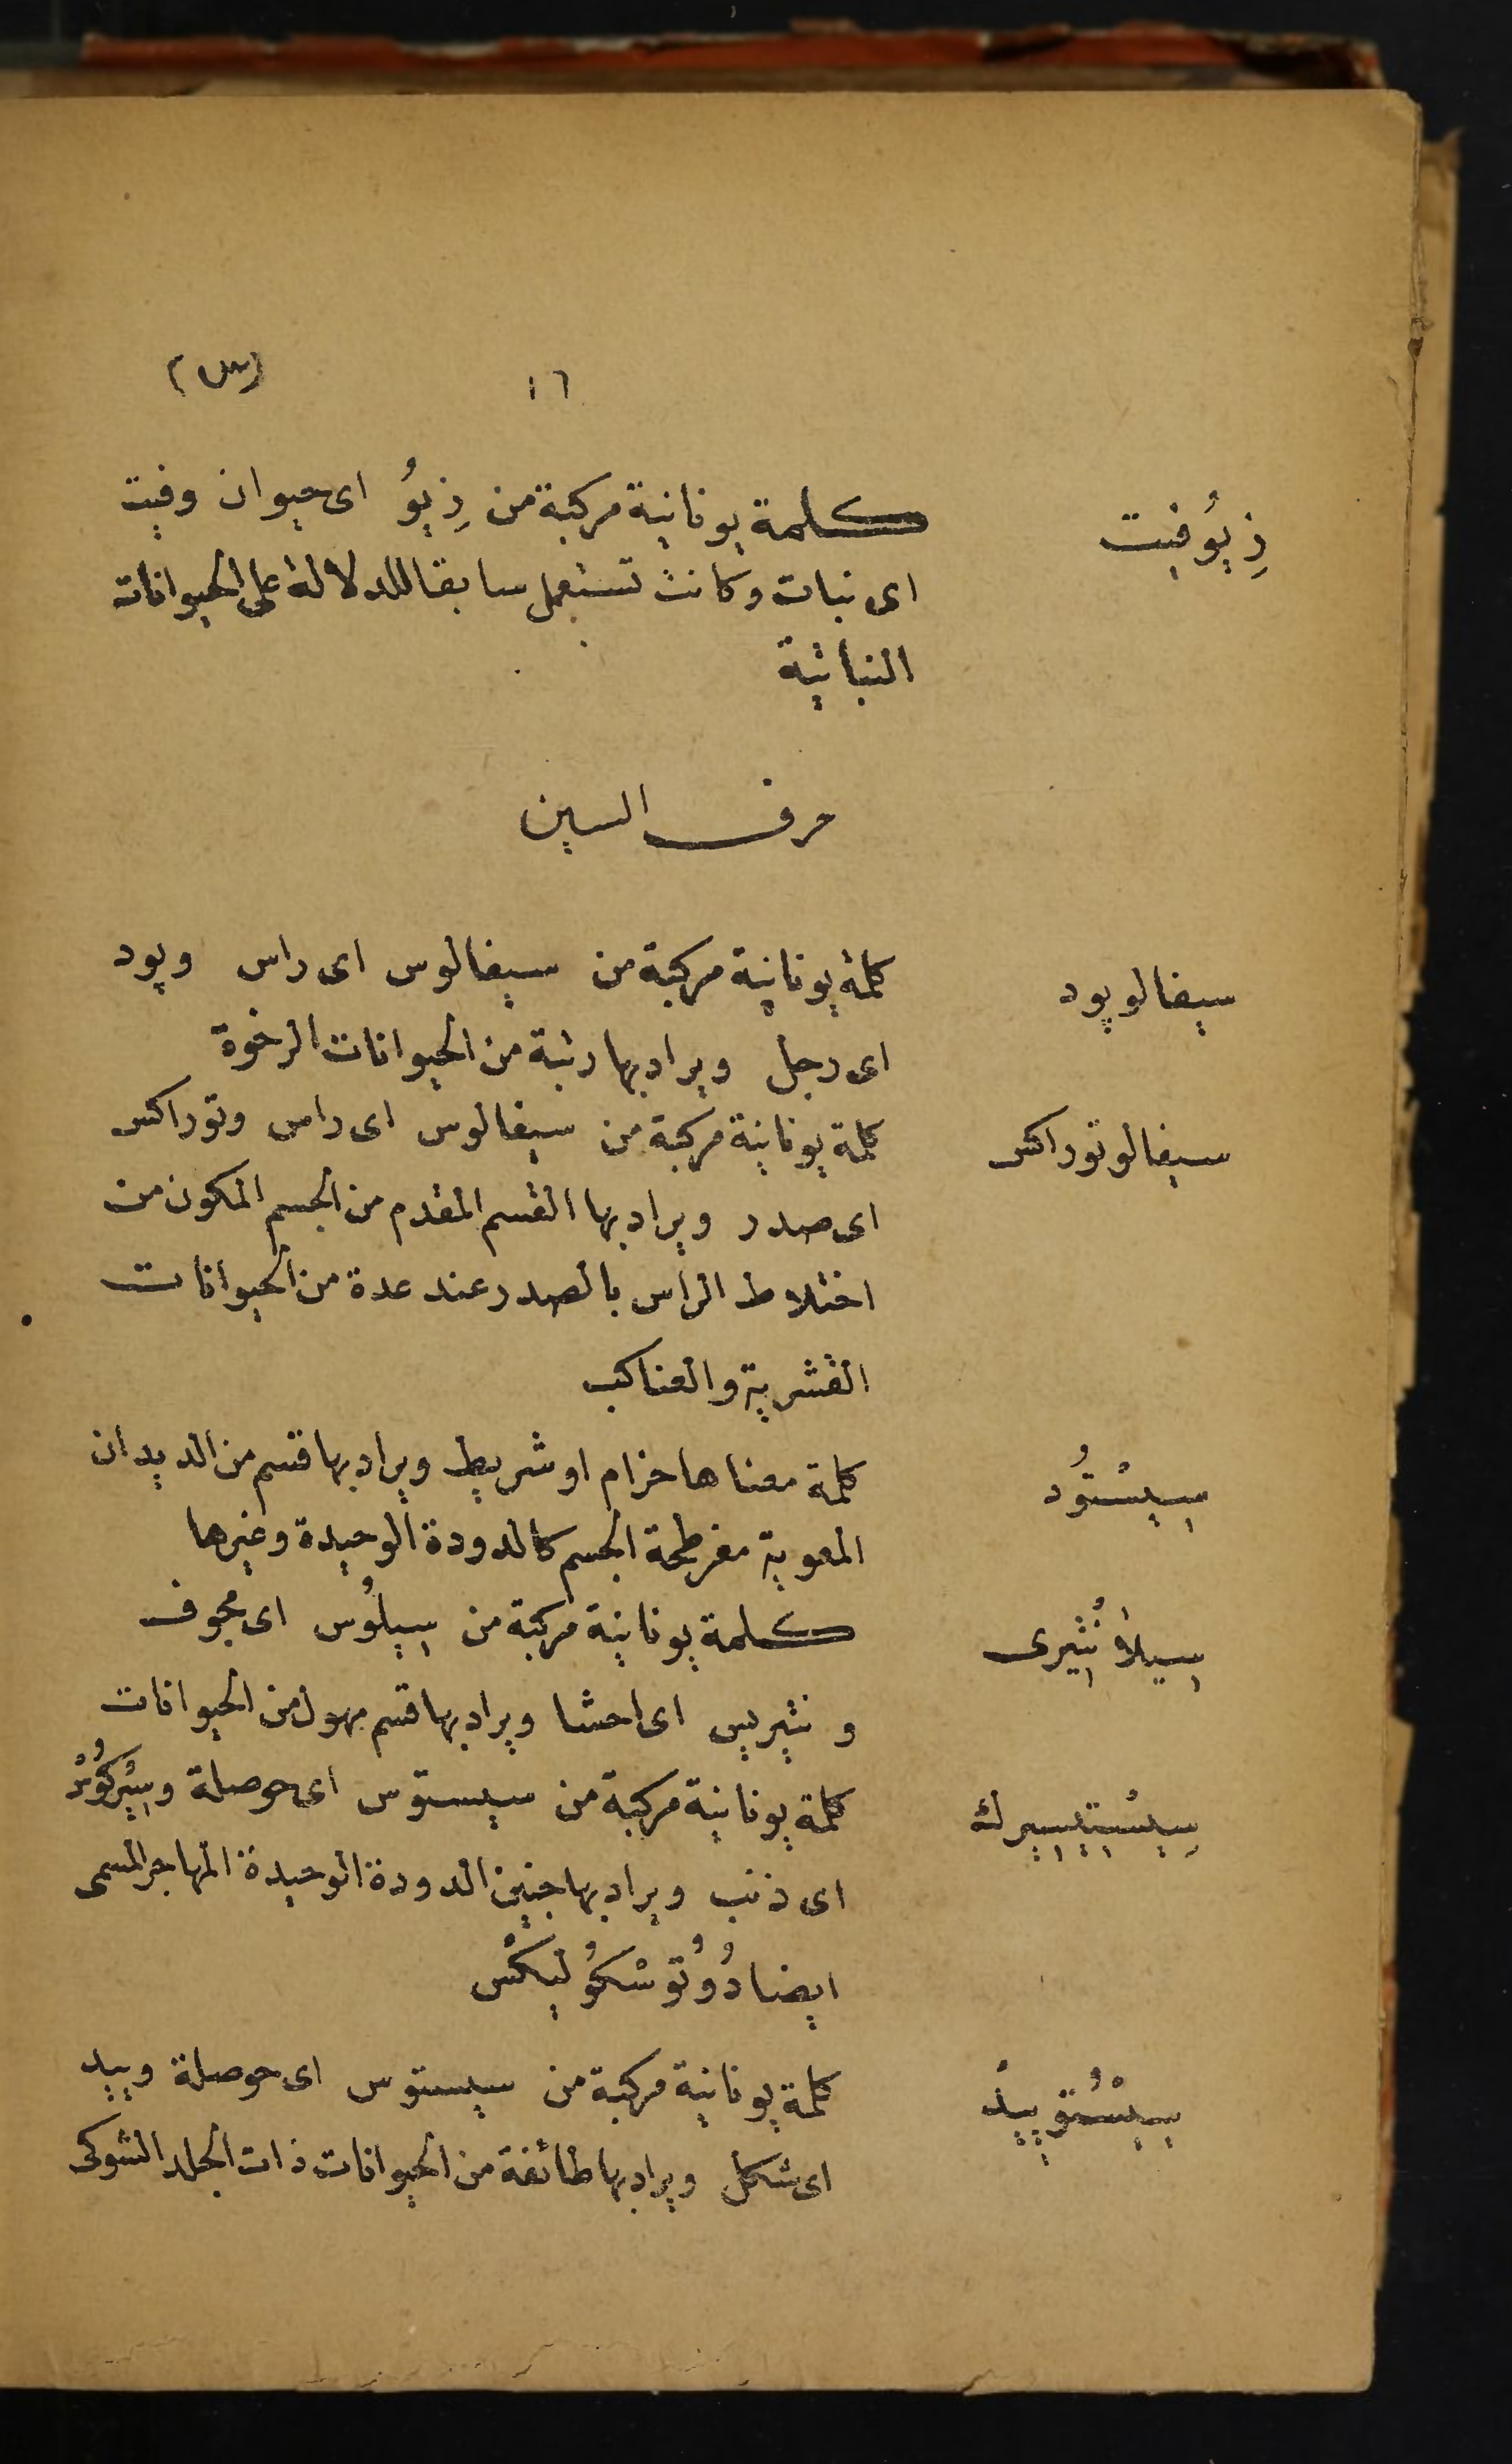 ١٦ (س)
زِيُوفيت كلمة يونانية مركبة من زِيوُ اى حيوان وفيت
اى نبات وكانت تستعمل سابقا للدلالة على الحيوانات
النباتية
حرف السين
سيفالوپود كلمة يونانية مركبة من سيفالوس اى راس وپود
اى رجل ويراد بها رتبة من الحيوانات الرخوة
سيفالوتوراكس كلمة يونانية مركبة من سيفالوس اى راس وتوراكس
اى صدر ويراد بها القسم المقدم من الجسم المكون من
اختلاط الراس بالصدر عند عدة من الحيوانات
القشرية والعناكب
سِيسْتُود كلمة معناها حزام او شريط ويراد بها قسم من الديدان
المعوية مفرطحة الجسم كالدودة الوحيدة وغيرها
سِيلاُنْتِيرى كلمة يونانية مركبة من سِيلُوس اى مجوف
و نتيريس اى احشا ويراد بها قسم مهول من الحيوانات
سِيسْتِيسِيرك كلمة يونانية مركبة من سيستوس اى حوصلة وسِيْركُوسْ
اى ذنب ويراد بها جنين الدودة الوحيدة المهاجر المسمى
ايضا دُوُتوسْكُولِيكْس
سِيسْتُوپِيدْ كلمة يونانية مركبة من سيستوس اى حوصلة وپيد
اى شكل ويراد بها طائفة من الحيوانات ذات الجلد الشوكى